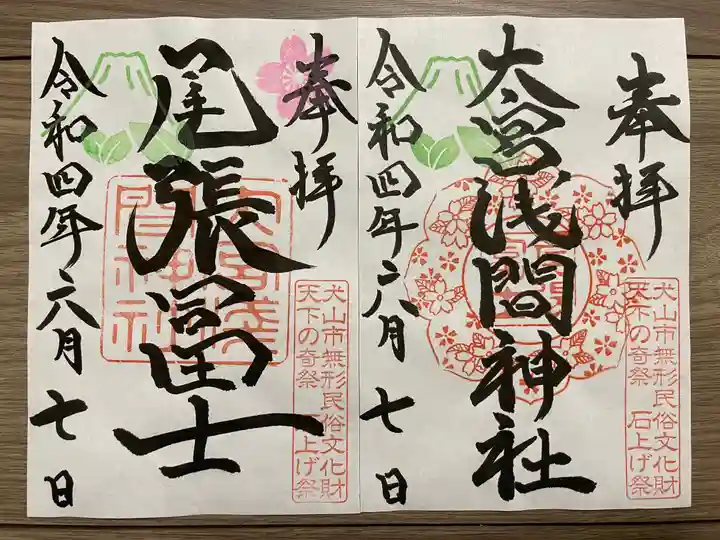 奉拝
大宮浅間神社
令和四年六月七日
犬山市無形民俗文化財
天下の奇祭 石上げ祭
奉拝
尾張冨士
令和四年六月七日
犬山市無形民俗文化財
天下の奇祭 石上げ祭